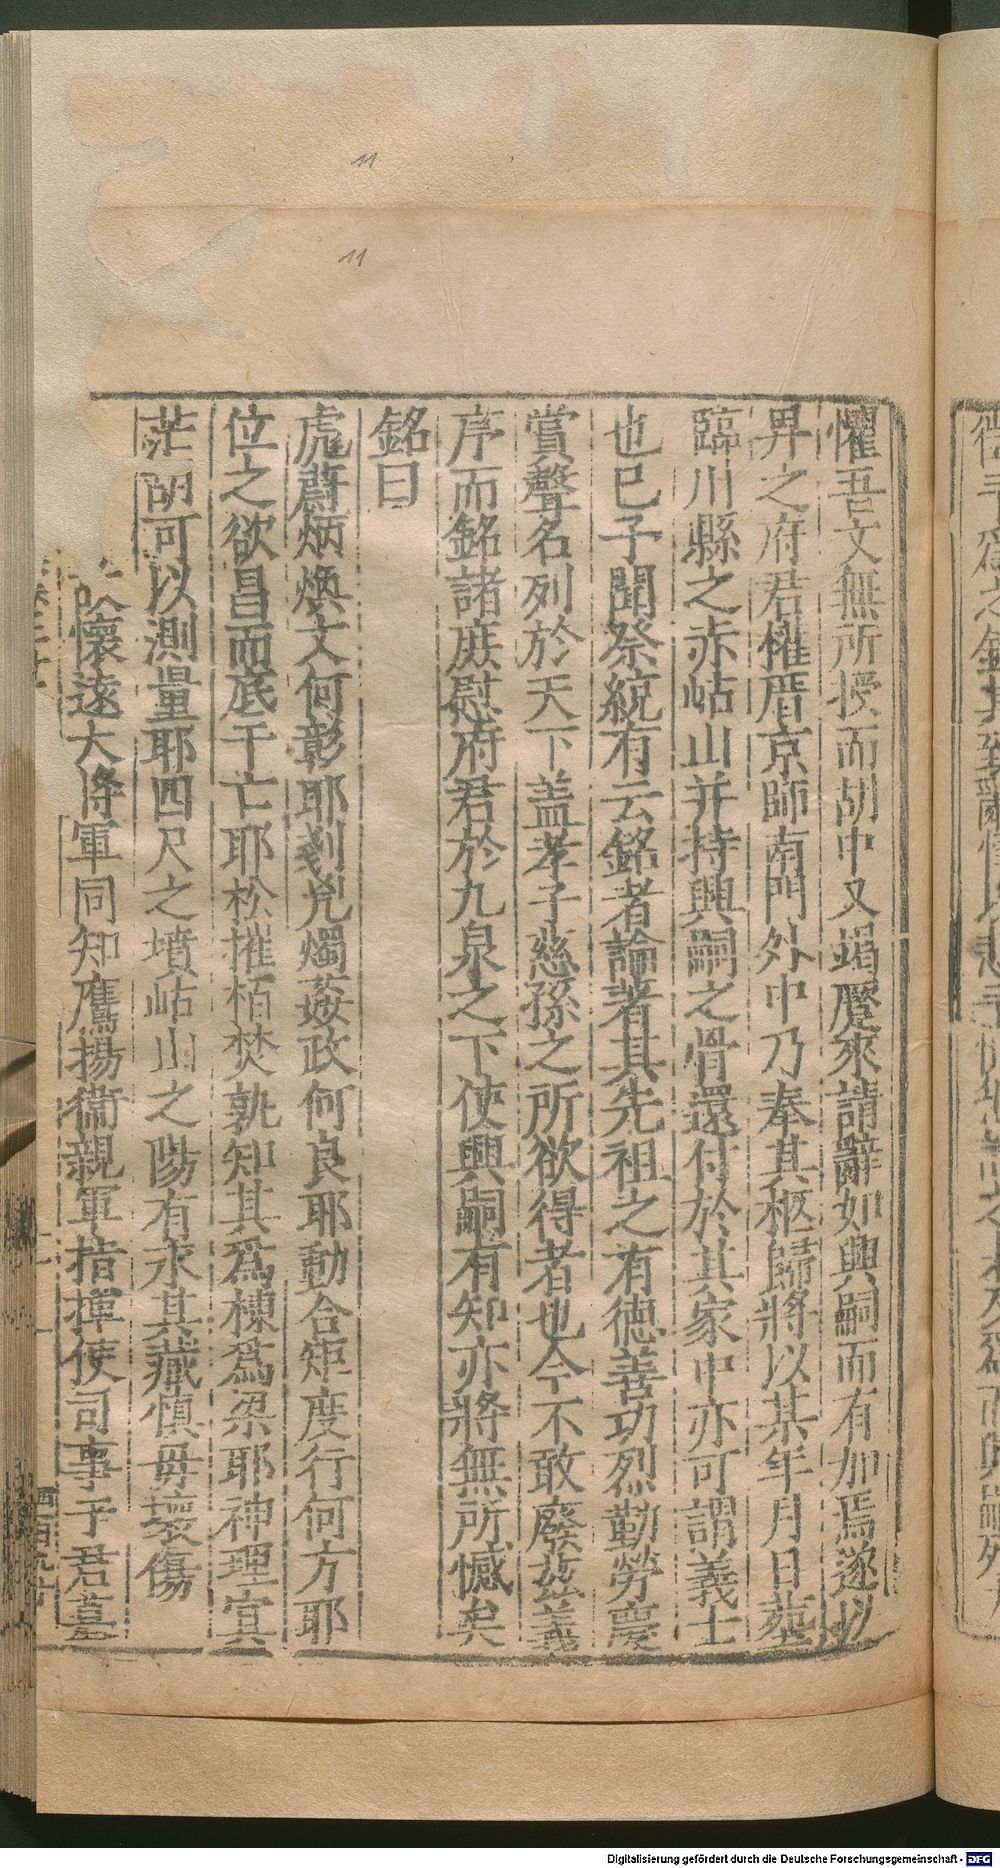 懼吾文無所授而胡中又竭蹷來請辭如興嗣而有加焉遂以
畀之府君權厝京師南門外中乃奉其柩歸將以某年月日葬
臨川縣之赤岵山并持興嗣之骨還付於其家中亦可謂義士
也已予聞祭統有云銘者論著其先祖之有德善功烈勤勞慶
賞聲名列於天下盖孝子慈孫之所欲得者也今不敢廢茲義
序而銘諸庶慰府君於九泉之下使興嗣有知亦將無所憾矣
銘曰
虎蔚炳煥文何彰耶剗兇燭姦政何良耶動合矩度行何方耶
位之欲昌而底于亡耶松摧栢焚孰知其爲棟爲梁耶神理冥
茫胡可以測量耶四尺之墳岵山之陽有永其藏慎毋壞傷
懷遠大將軍同知鷹揚衞親軍指揮使司事于君墓
11
11
Digitalisierung gefördert durch die Deutsche Forschungsgemeinschaft - DFG